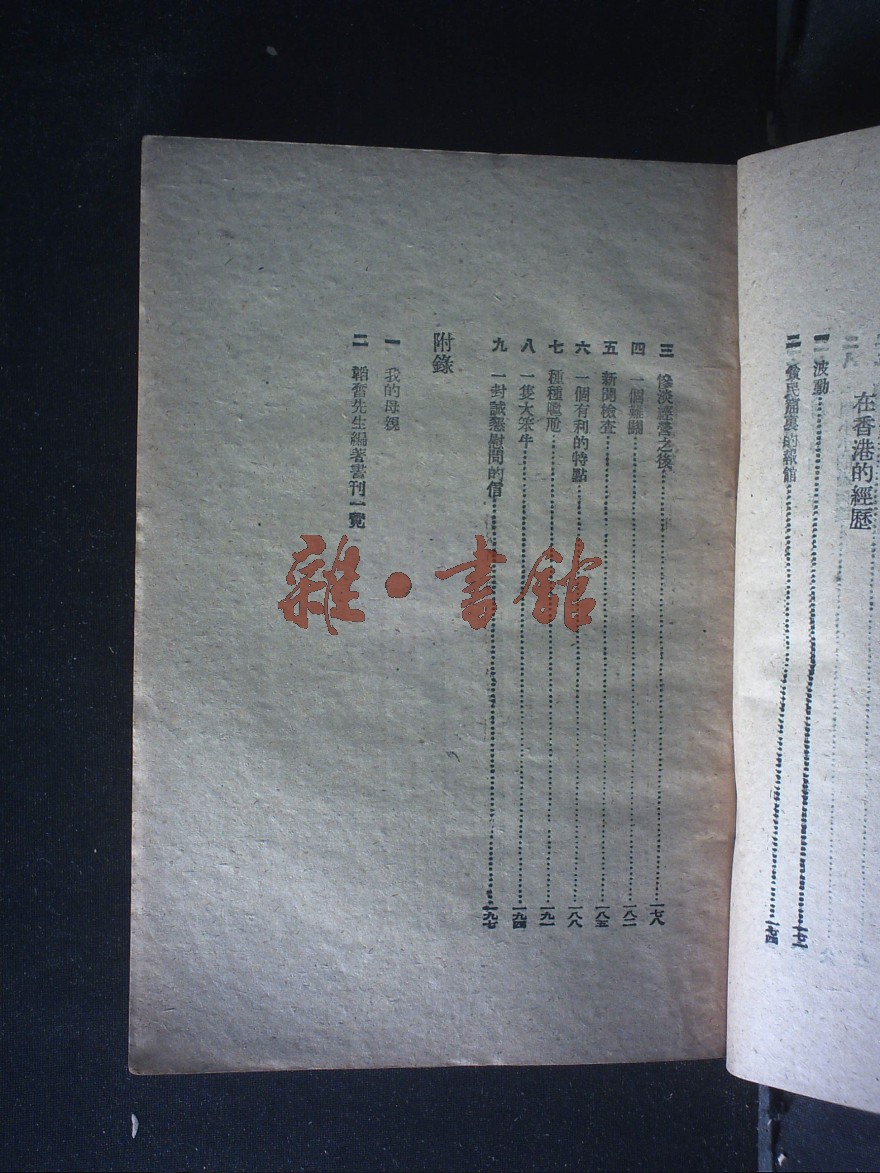 在香港的經歷
一 波動 一七一
二 貧民窟裏的報館 一七四
三 慘淡經營之後 一七八
四 一個難關 一八二
五 新聞檢查 一八五
六 一個有利的特點 一八八
七 種種尷尬 一九一
八 一隻大笨牛 一九四
九 一封誠懇慰問的信 一九七
附錄
一 我的母親
二 韜奮先生編著書刊一覽
雜·書館